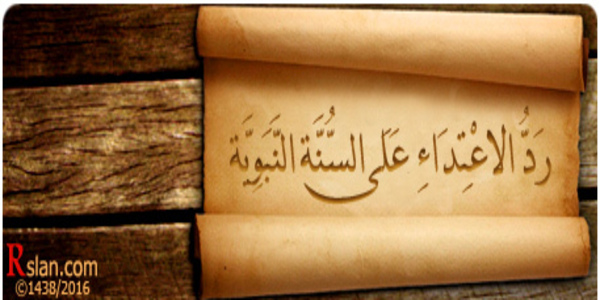 رَدُّ الاعْتِدَاءِ عَلَى السُّنَّةِ النَّبَوِيَّة
Rslan.com
©1438/2016